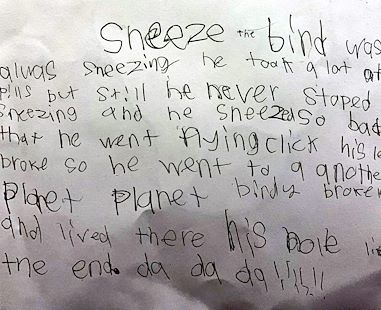 sneeze the bind was
alwas sneezing he took a lot of
pills but still he never stoped
sneezing and he sneezed so bad
that he went flying click his le
broke so he went to a anothe
Planet Planet birdy broke
and lived there his hole li
the end. da da da!!!!!!